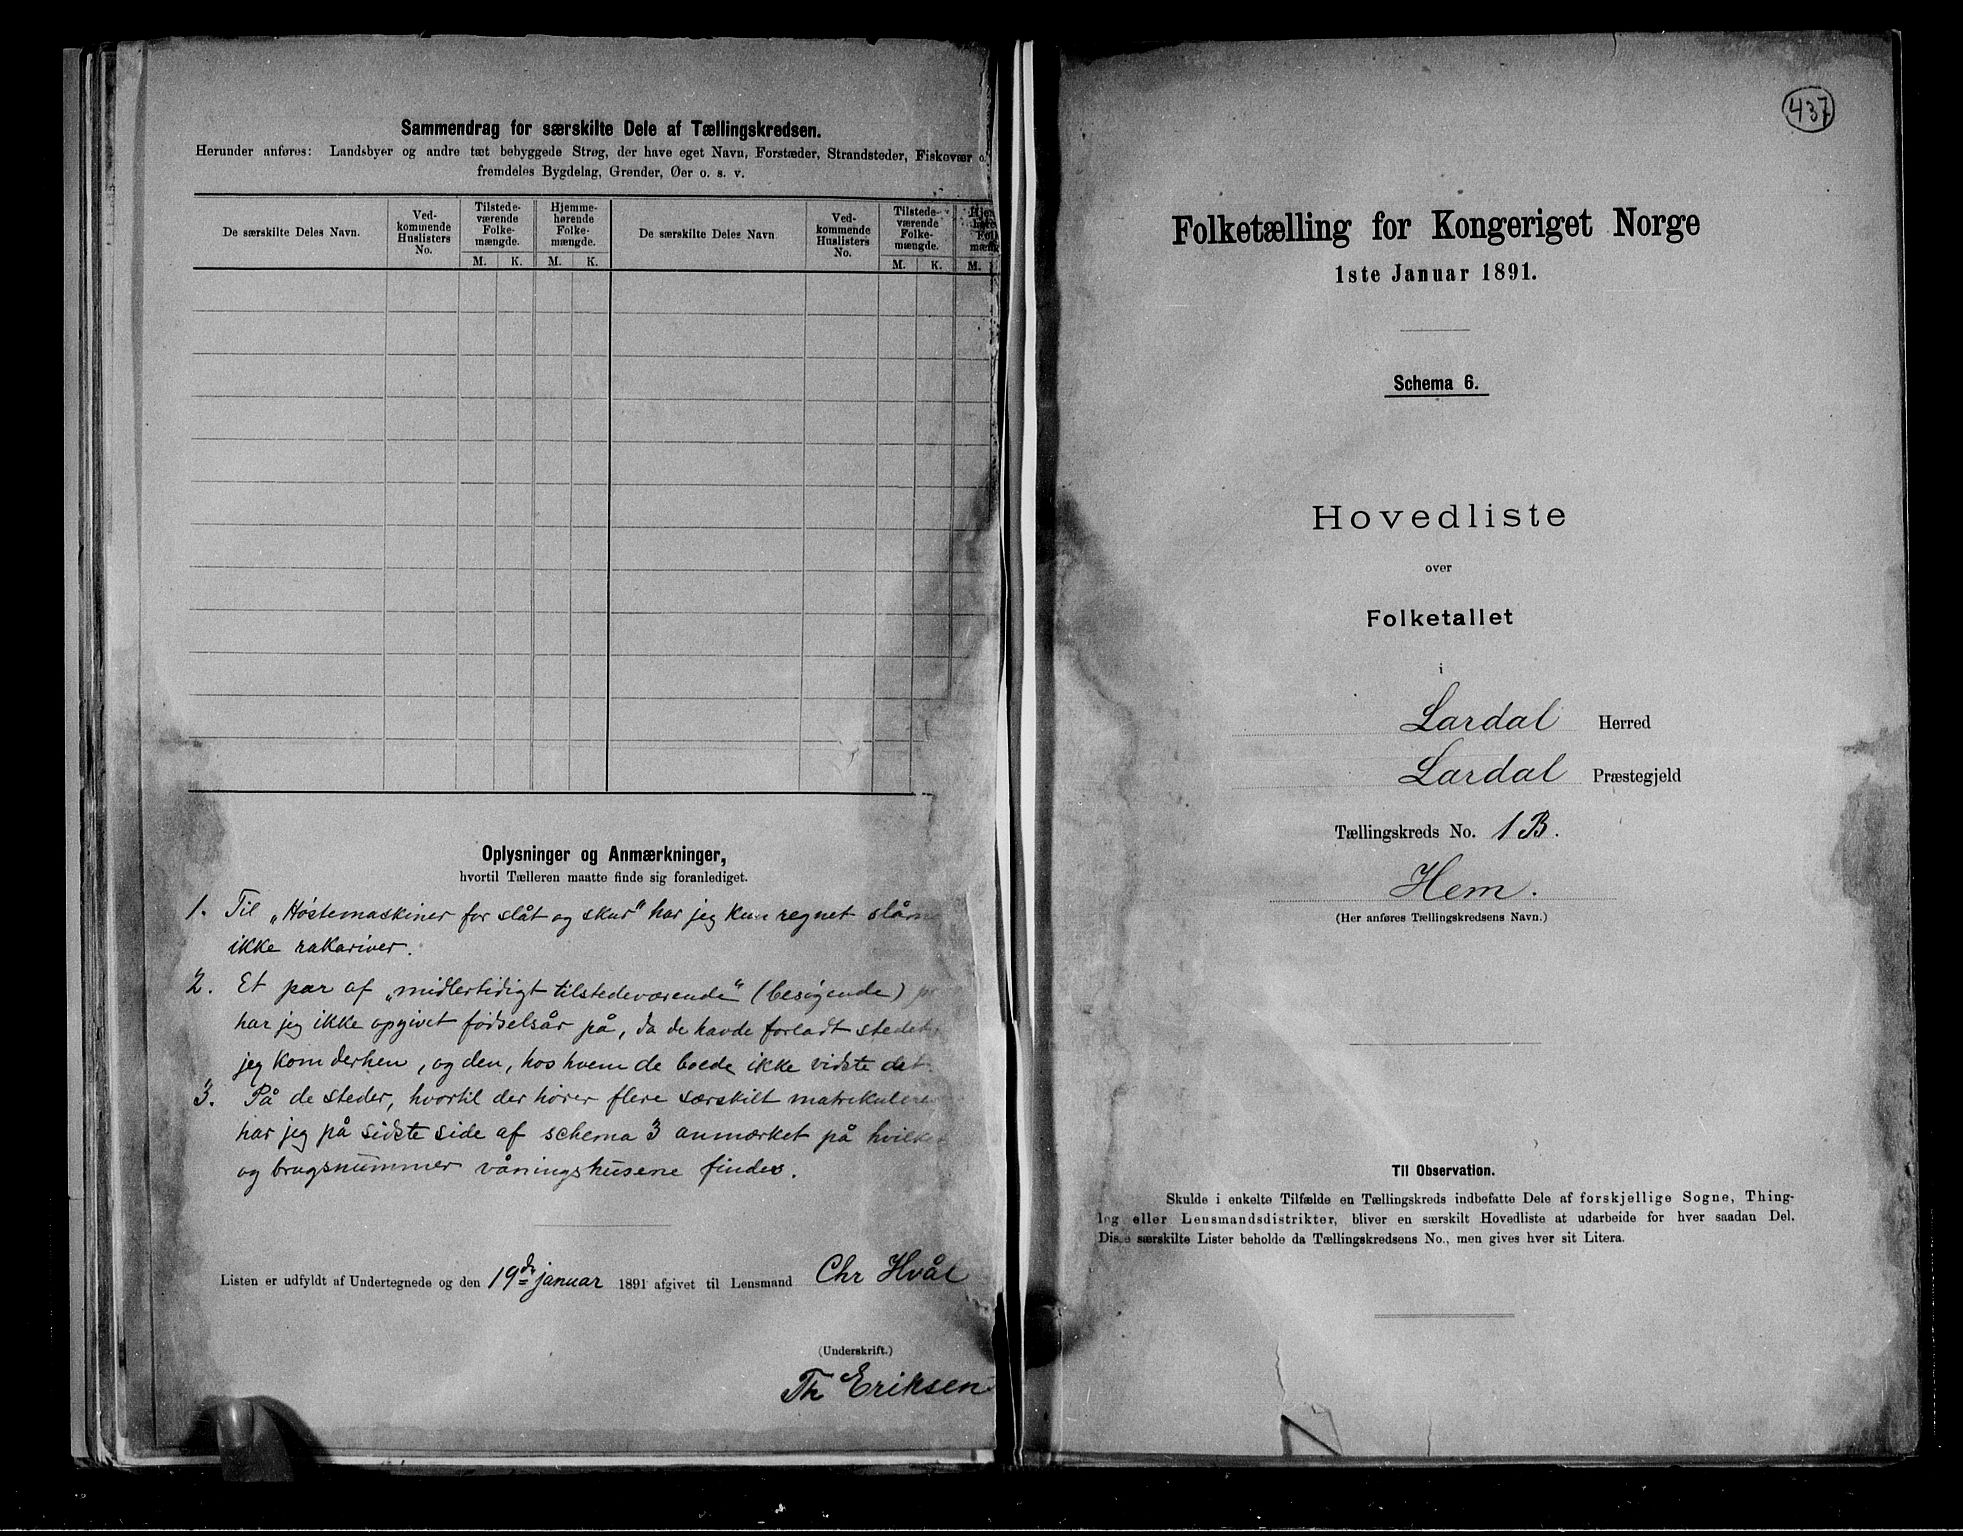 Sammendrag for særskilte Dele af Tællingskredsen.
Herunder anføres: Landsbyer og andre tæt bebyggede Strøg, der have eget Navn, Forstæder, Strandsteder, Fiskevær o.
fremdeles Bygdelag, Grender, Øer o. s. v.
De særskilte Deles Navn.
Ved-
kommende
Huslisters
No.
Tilstede-
værende
Folke-
mængde.
M. K.
Hjemme-
hørende
Folke-
mængde.
M. K.
De særskilte Deles Navn
Ved-
kommende
Huslisters
No.
Tilstede-
værende
Folke-
mængde.
M. K.
M.
Oplysninger og Anmærkninger,
hvortil Tælleren maatte finde sig foranlediget.
1. Til „Høstemaskiner for slåt og skur" har jeg kun regnet
ikke rakariver.
2. Et par af „midlertidigt tilstedeværende" (besøgende)
har jeg ikke opgivet fødselsår på, da de havde forladt stedet,
jeg kom derhen, og den, hos hvem de boede ikke vidste det.
3. På de steder, hvortil der hører flere særskilt
har jeg på sidste side af schema 3 anmærket på
og brugsnummer våningshusene findes.
Listen er udfyldt af Undertegnede og den 19de januar 1891 afgivet til Lensmand Chr Hvål
(Underskrift.)
Th Eriksen
437
Folketælling for Kongeriget Norge
1ste Januar 1891.
Schema 6.
Hovedliste
over
Folketallet
i
Lardal Herred
Lardal Præstegjeld
Tællingskreds No. 1 B.
Hem.
(Her anføres Tællingskredsens Navn.)
Til Observation.
Skulde i enkelte Tilfælde en Tællingskreds indbefatte Dele af forskjellige Sogne, Thing-
lag eller Lensmandsdistrikter, bliver en særskilt Hovedliste at udarbeide for hver saadan Del.
Disse særskilte Lister beholde da Tællingskredsens No., men gives hver sit Litera.